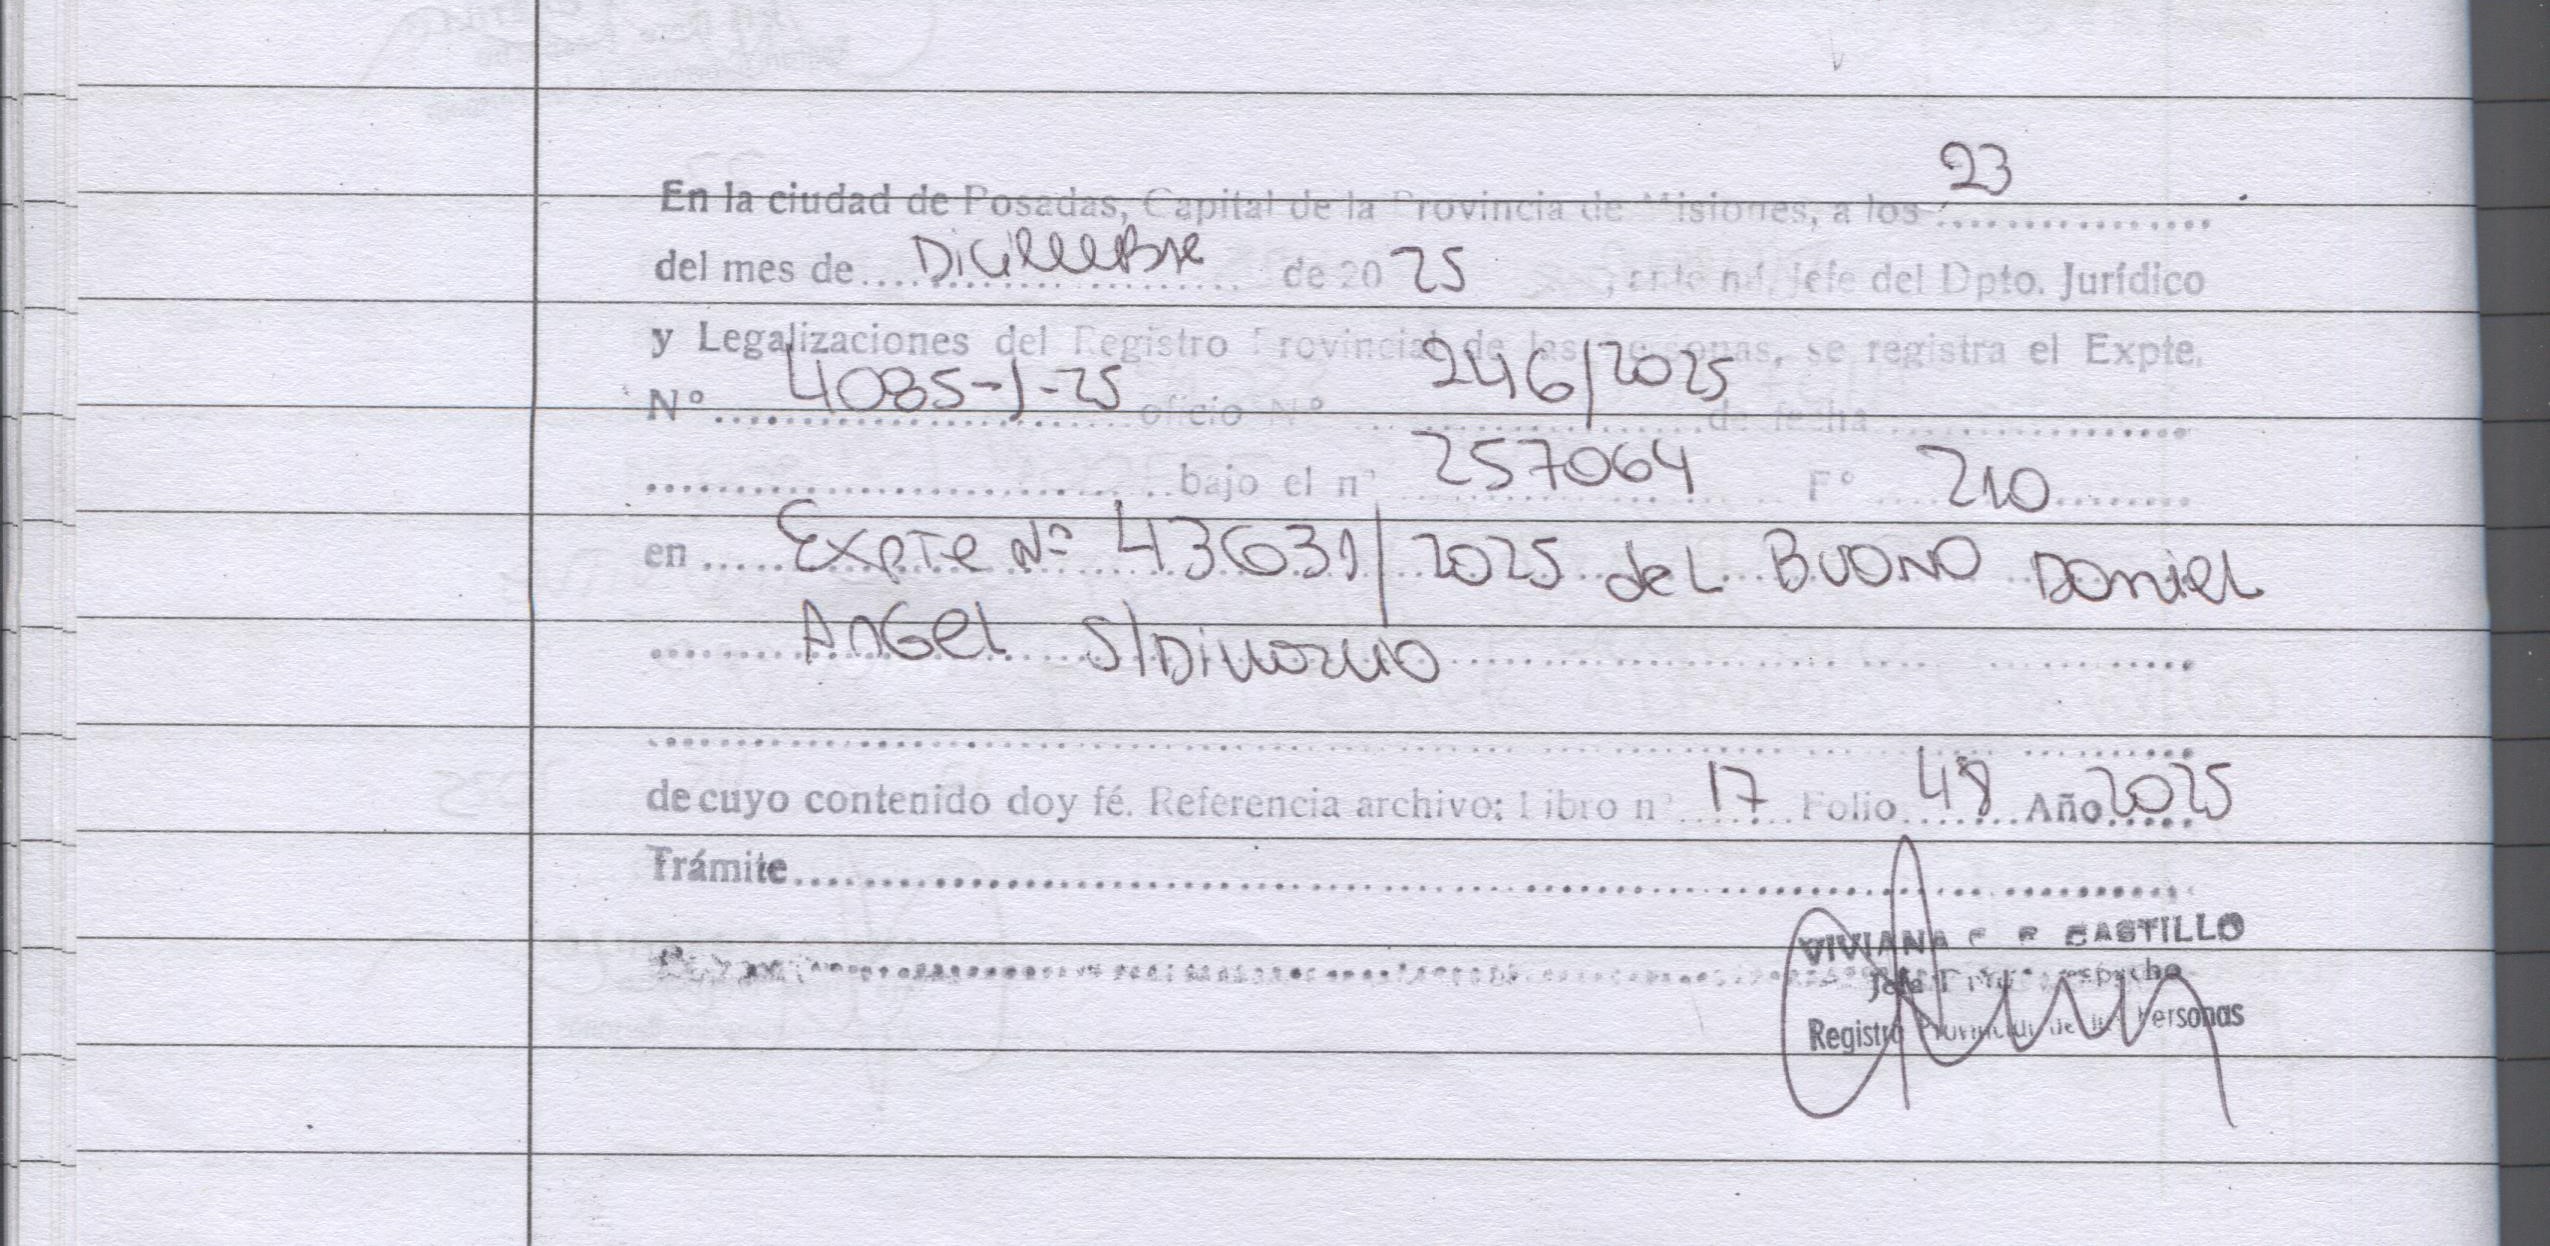 En la ciudad de Posadas, Capital de la Provincia de Misiones, a los 23
del mes de Diciembre de 20 25, ante mí, Jefe del Dpto. Jurídico
y Legalizaciones del Registro Provincial de las Personas, se registra el Expte.
Nº 4085-J-25 oficio Nº 246/2025 de fecha
bajo el nº 257064 Fº 210
en Expte Nº 43631/2025 del BUONO Daniel
Angel S/Divorcio
de cuyo contenido doy fé. Referencia archivo: Libro nº 17 Folio 49 Año 2025
Trámite
VIVIANA CASTILLO
Registro Provincial de las Personas